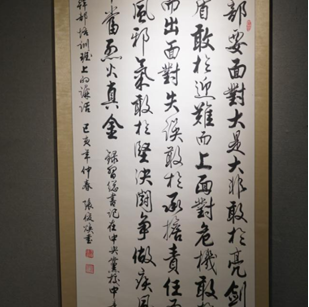 部要面對大是大非敢於亮劍
盾敢於迎難而上面對危機敢
而出面對失誤敢於承擔責任
風邪氣敢於堅決鬥爭做疾風
當烈火真金 錄習總書記在中央黨校中
幹部培訓班上的講話 己亥年仲春 張俊書